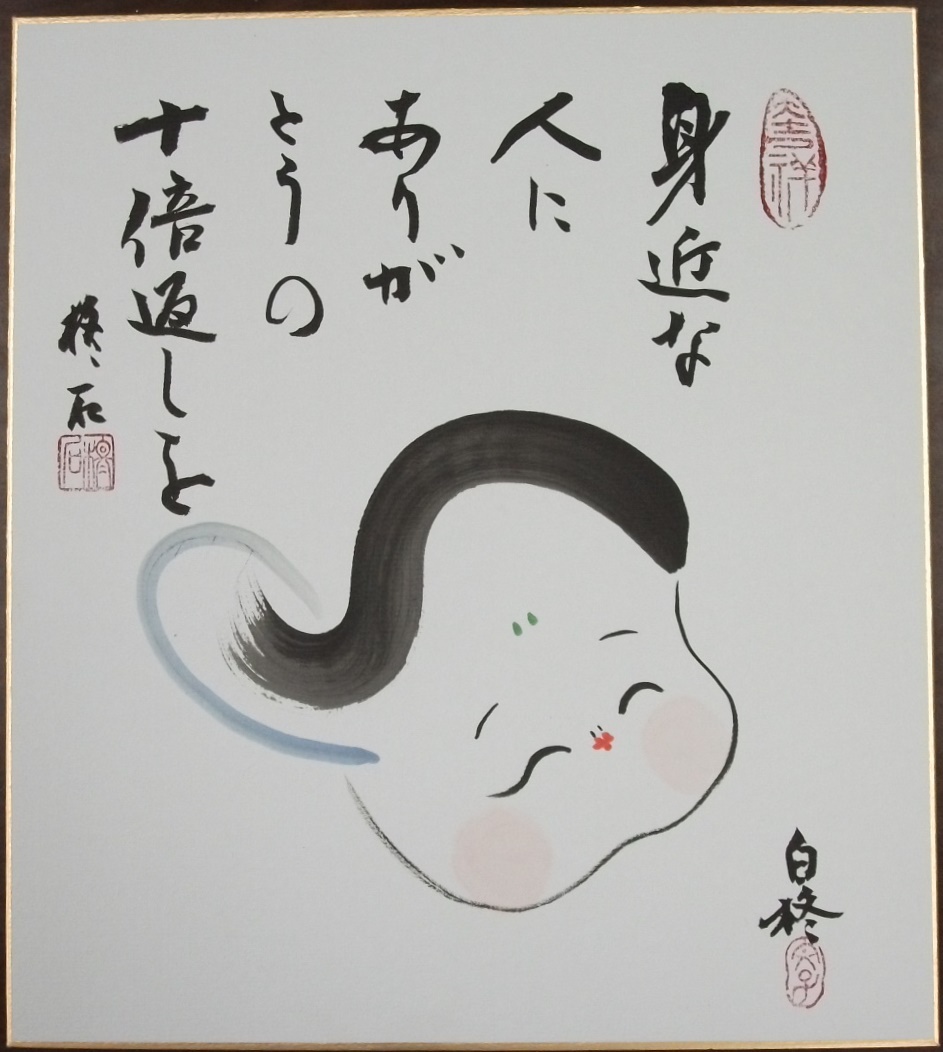 身近な
人に
ありが
とうの
十倍返しを
柊石
白柊